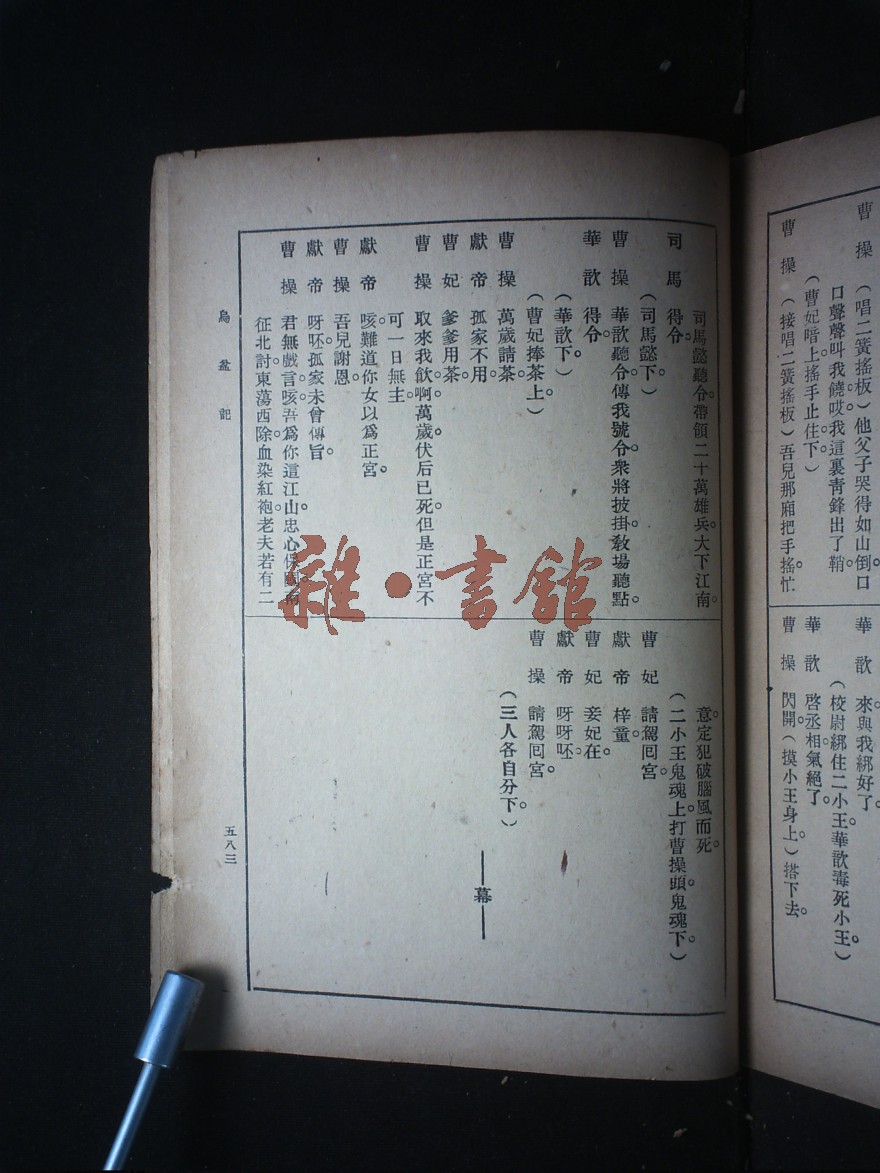 曹　操　（唱二簧搖板）他父子哭得如山倒口
口聲聲叫我饒。哎我這裏青鋒出了鞘。
（曹妃暗上搖手止住下。）
曹　操　（接唱二簧搖板）吾兒那廂把手搖忙
華　歆　來與我綁好了。
（校尉綁住二小王華歆毒死小王。）
華　歆　啓丞相氣絕了。
曹　操　閃開。（摸小王身上。）搭下去。
司馬懿聽令。帶領二十萬雄兵。大下江南。
司　馬　得令。
（司馬懿下）
曹　操　華歆聽令。傳我號令。衆將披掛。敎場聽點。
華　歆　得令。
（華歆下。）
曹　操　萬歲請茶。
（曹妃捧茶上。）
獻　帝　孤家不用。
曹　妃　爹爹用茶。
曹　操　取來我飲。啊。萬歲伏后已死。但是正宮不
可一日無主
獻　帝　咳。難道你女以爲正宮。
曹　操　吾兒謝恩。
獻　帝　呀呸。孤家未曾傳旨。
曹　操　君無戲言。咳。吾爲你這江山。忠心保國
征北討。東蕩西除。血染紅袍。老夫若有二
意。定犯破腦風而死。
（二小王鬼魂上。打曹操頭。鬼魂下。）
曹　妃　請駕囘宮。
獻　帝　梓童。
曹　妃　妾妃在。
獻　帝　呀呀呸。
曹　操　請駕囘宮。
（三人各自分下。）
——幕——
烏盆記
五八三
雜·書館